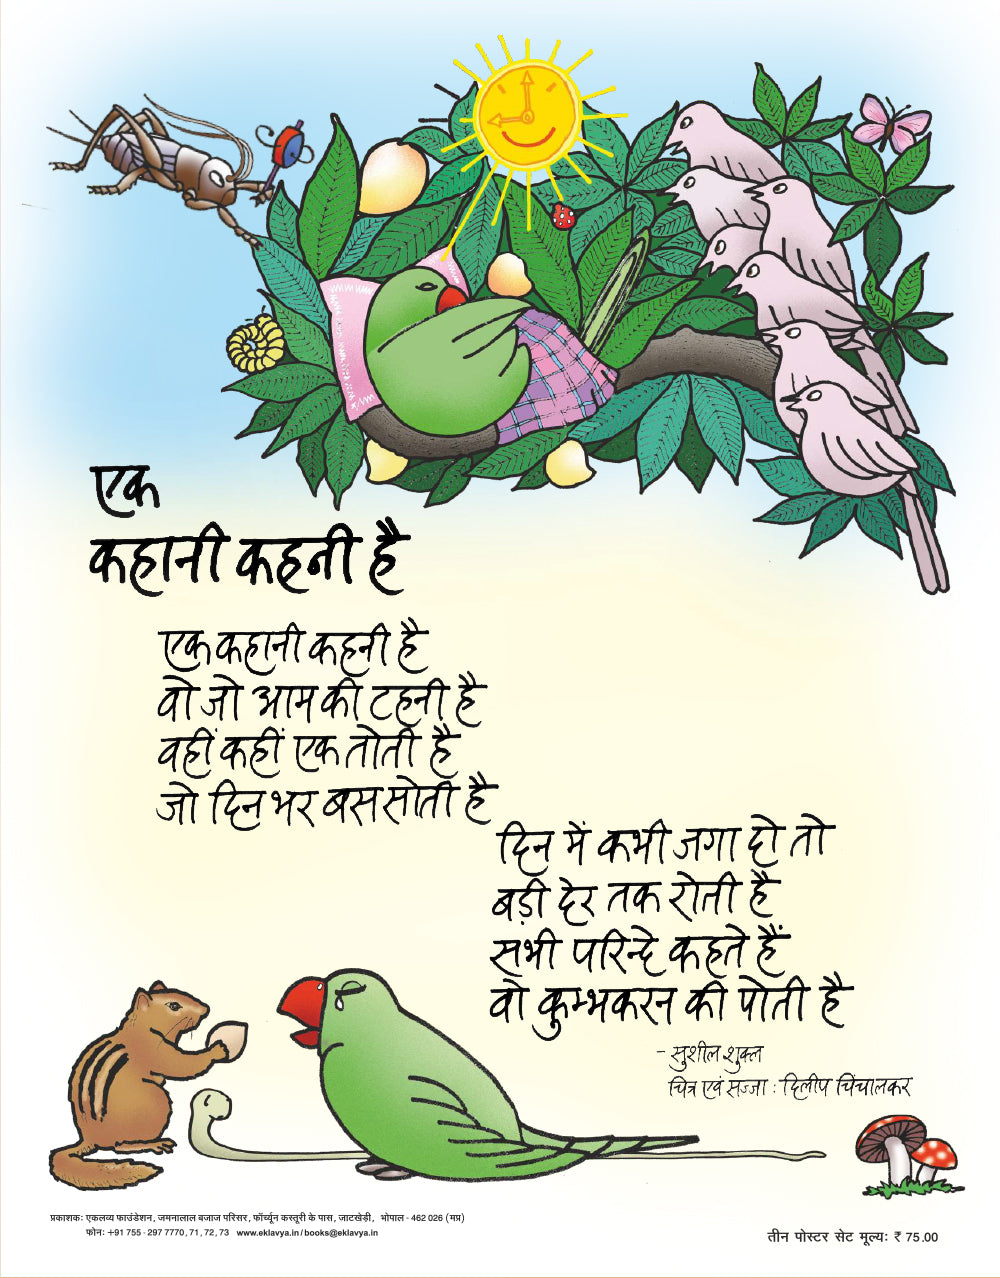 एक
कहानी कहनी है
एक कहानी कहनी है
वो जो आम की टहनी है
वहीं कहीं एक तोती है
जो दिन भर बस सोती है
दिन में कभी जगा दो तो
बड़ी देर तक रोती है
सभी परिन्दे कहते हैं
वो कुम्भकरन की पोती है
- सुशील शुक्ल
चित्र एवं सज्जा : दिलीप चिंचालकर
प्रकाशकः एकलव्य फाउंडेशन, जमनालाल बजाज परिसर, फॉर्च्यून कस्तूरी के पास, जाटखेड़ी, भोपाल - 462 026 (मप्र)
फोनः +91 755 - 297 7770, 71, 72, 73 www.eklavya.in/books@eklavya.in
तीन पोस्टर सेट मूल्यः ₹ 75.00